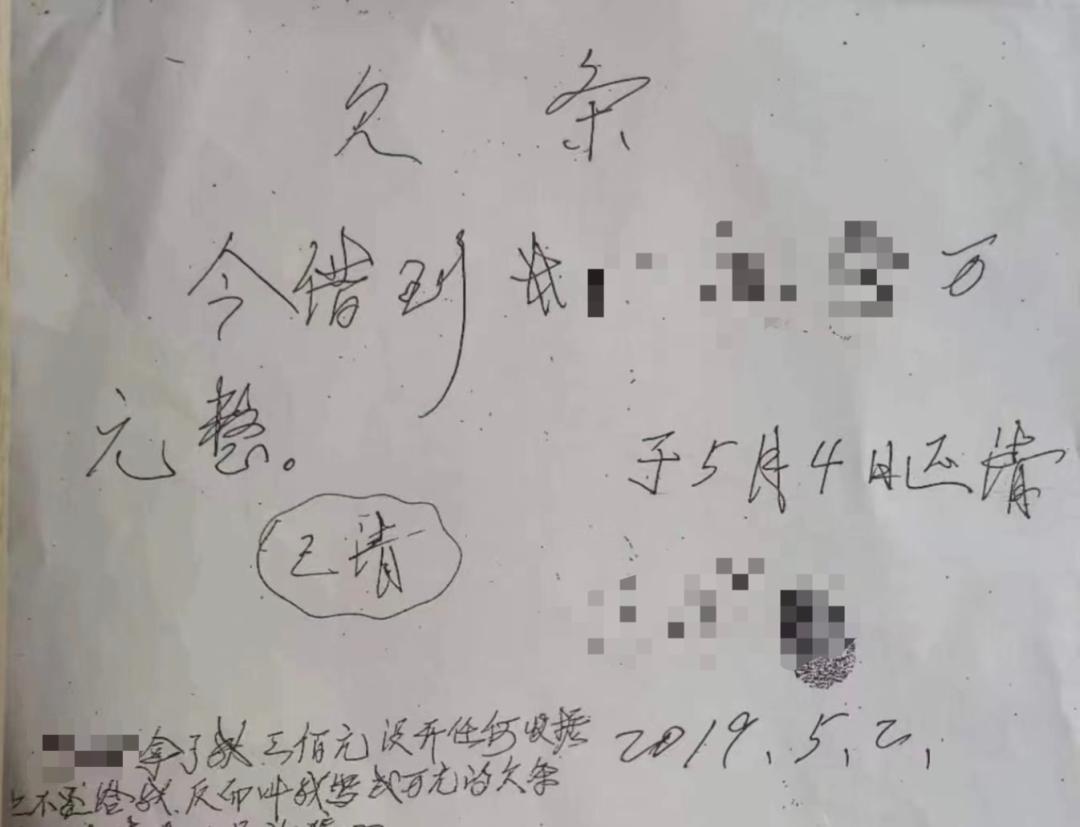 欠条
今借到 万
元整。 于5月4日还清
已清
拿了我三佰元没开任何收据
2019.5.2.
不还给我.反而叫我写贰万元的欠条